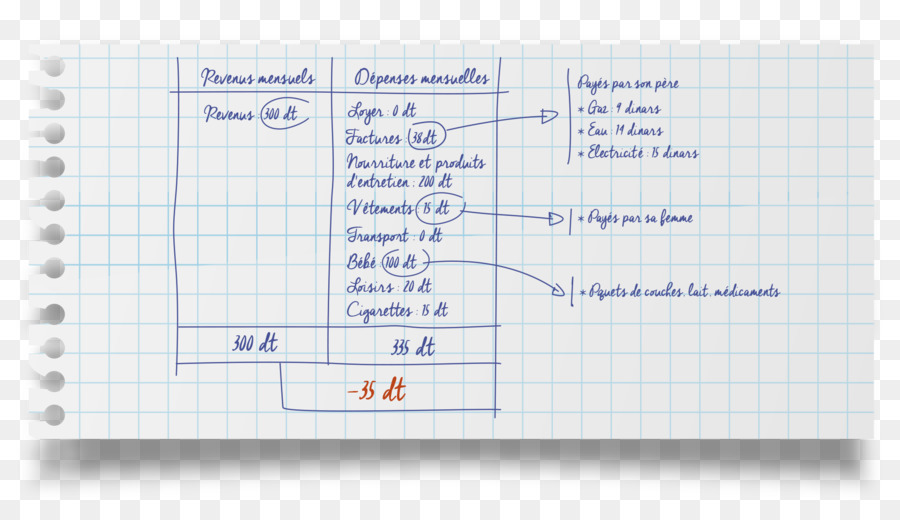 Revenus mensuels
Revenus 300 dt
300 dt
Dépenses mensuelles
Loyer : 0 dt
Factures 38 dt
Nourriture et produits
d'entretien : 200 dt
Vêtements 15 dt
Transport : 0 dt
Bébé 100 dt
Loisirs : 20 dt
Cigarettes : 15 dt
335 dt
-35 dt
Payés par son père
* Gaz : 9 dinars
* Eau : 14 dinars
* Electricité : 15 dinars
* Payés par sa femme
* Piquets de couches, lait, médicaments